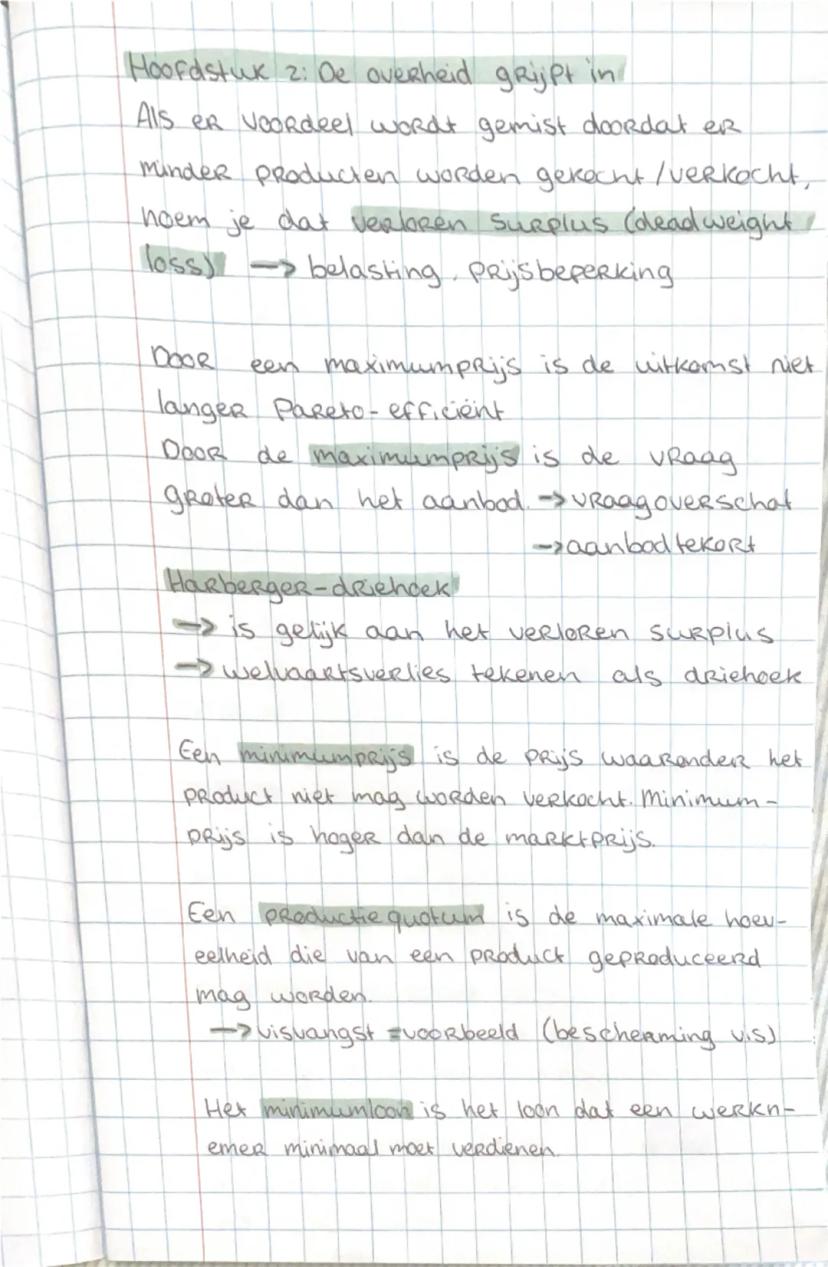 Hoofdstuk 2: De overheid grijpt in
Als er voordeel wordt gemist doordat er
minder producten worden gekocht/verkocht,
noem je dat verloren surplus (deadweight
loss) → belasting, prijsbeperking
Door een maximumprijs is de uitkomst niet
langer Pareto-efficiënt
Door de maximumprijs is de vraag
groter dan het aanbod. → vraagoverschot
→ aanbodtekort
Harberger-driehoek
→ is gelijk aan het verloren surplus
→ welvaartsverlies tekenen als driehoek
Een minimumprijs is de prijs waaronder het
product niet mag worden verkocht. Minimum-
prijs is hoger dan de marktprijs.
Een productiequotum is de maximale hoev-
eelheid die van een product geproduceerd
mag worden.
→ visvangst = voorbeeld (bescherming vis)
Het minimumloon is het loon dat een werkn-
emer minimaal moet verdienen